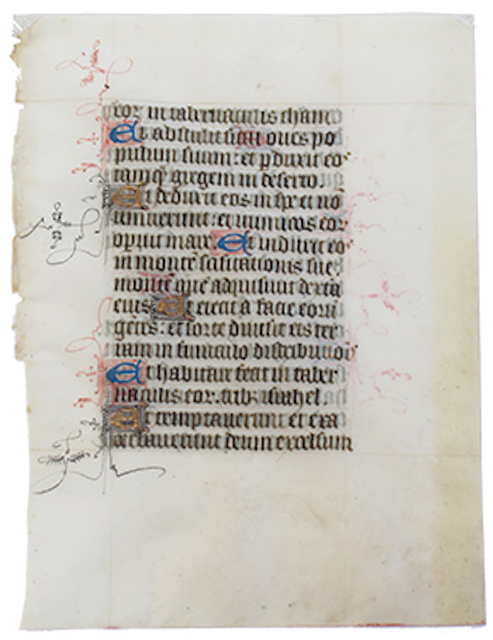 eoꝝ in tabernaculis cham
Et abstulit sicut oues po
pulum suum: et ꝑduxit eos
tamꝗ gregem in deserto.
Et deduxit eos in spe et no
timuerunt: et inimicos eor
operuit mare. Et induxit eos
in monte̅ sc̅ificationis sue
monte̅ que̅ adquisiuit dext̅a
eius Et eiecit a facie eoru̅
gentes: et sorte diuisit eis ter
ram in funiculo distributiois
Et habitare fecit in taber
naculis eor. tribꝫ israhel.
Et temptauerunt et exa
cerbauerunt deum excelsum